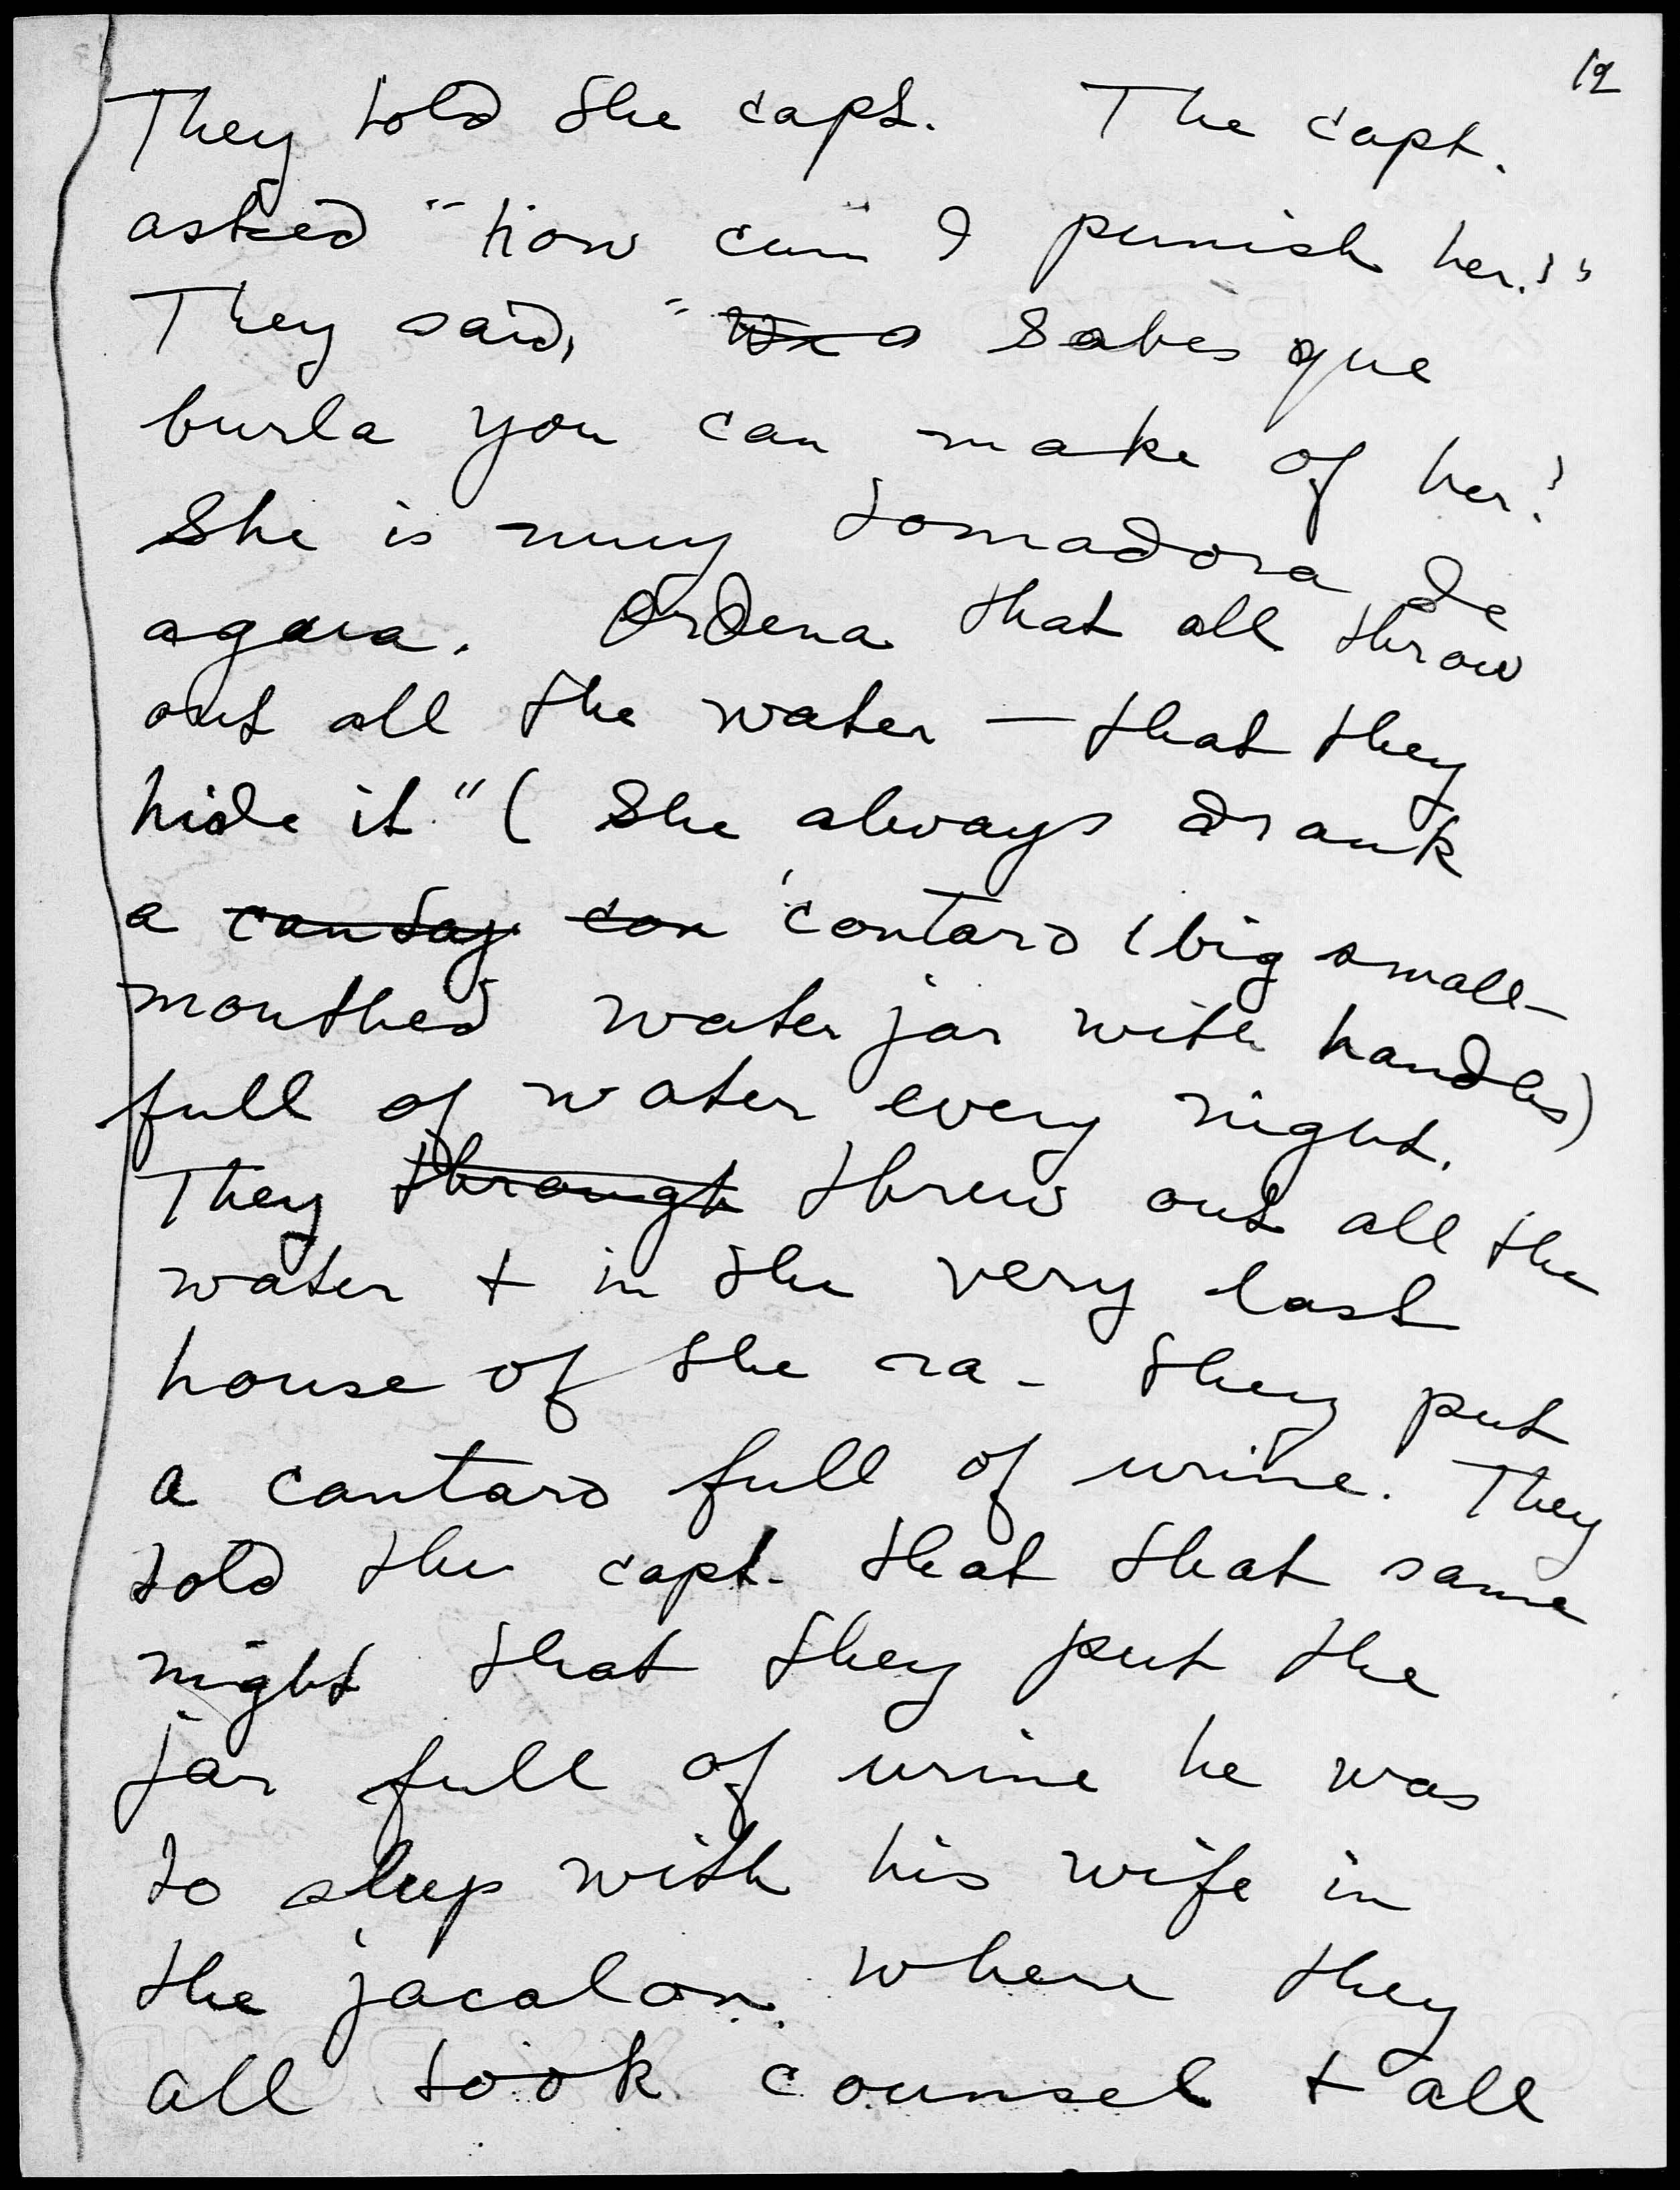 12
They told the capt. The capt.
asked "how can I punish her?"
They said, "Sabes que
burla you can make of her?
She is muy tomadora de
agua. Ordena that all throw
out all the water — that they
hide it." (She always drank
a cantay con contaro (big small-
mouthed water jar with handles)
full of water every night.
They through threw out all the
water + in the very last
house of the ra- they put
a cantaro full of urine. They
told the capt. that that same
night that they put the
jar full of urine he was
to sleep with his wife in
the jacalon where they
all took counsel + all